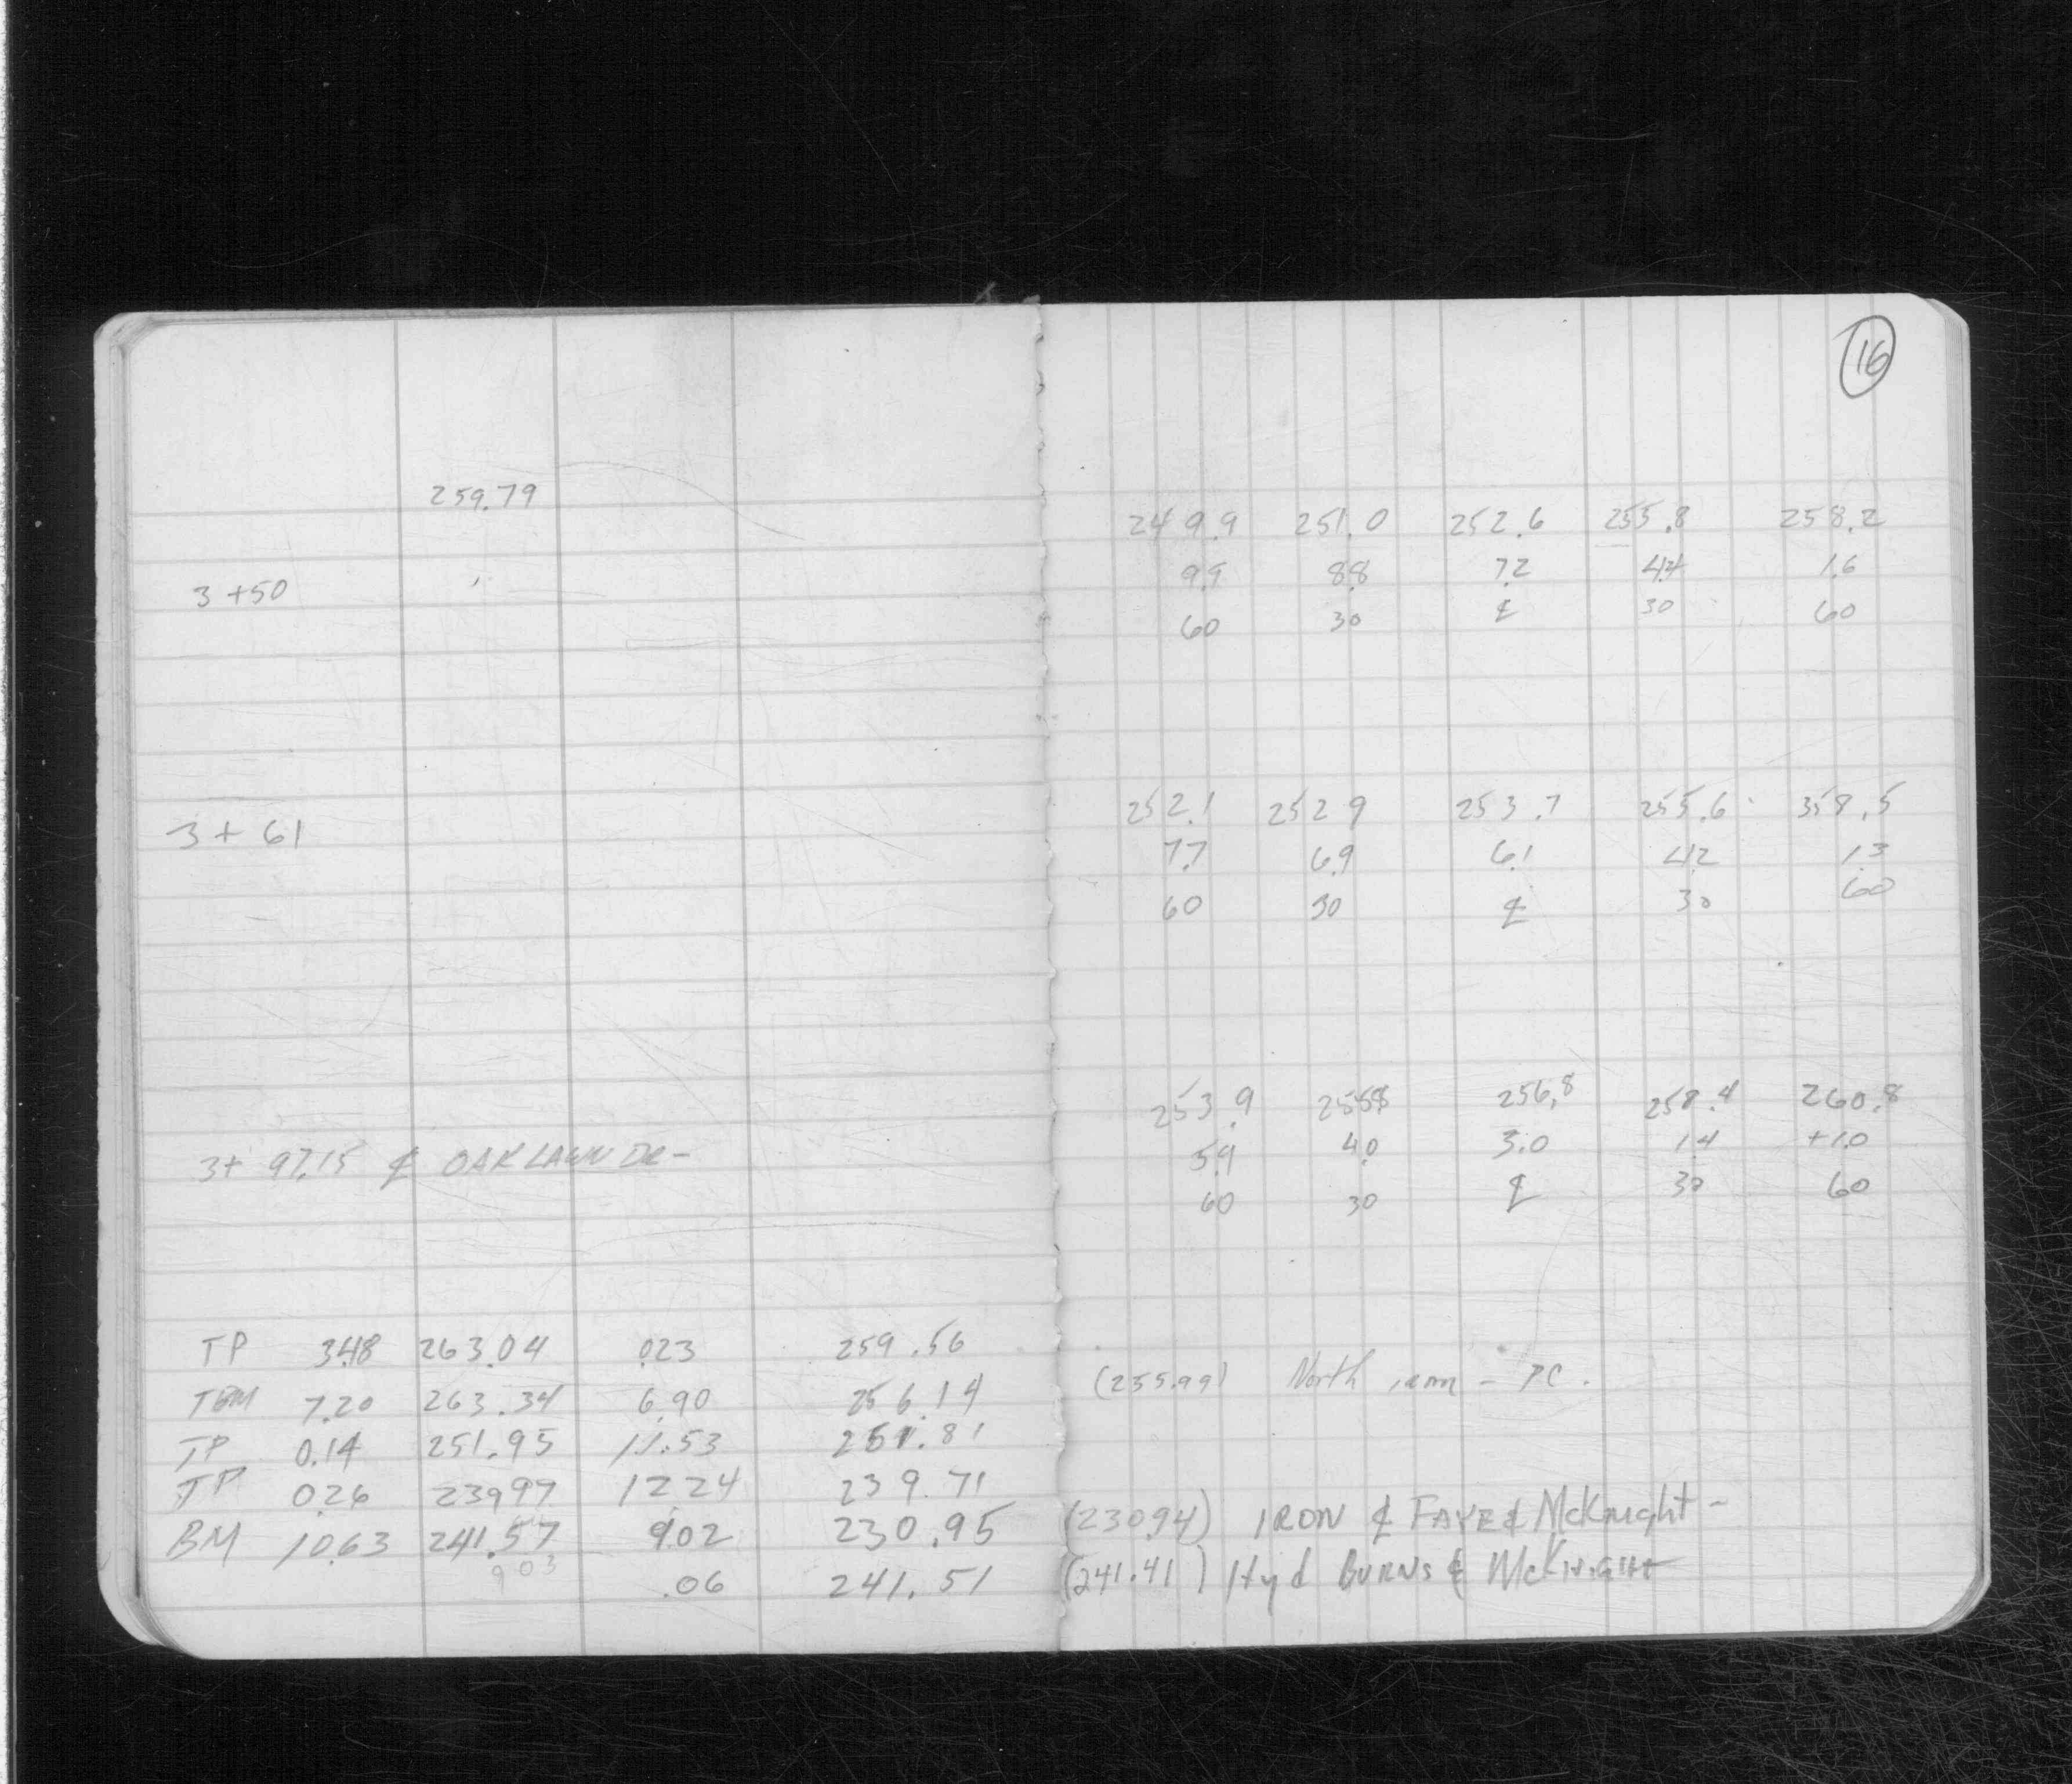 16
259.79
249.9 251.0 252.6 255.8 258.2
3+50 9.9 8.8 7.2 4.4 1.6
60 30 ℄ 30 60
252.1 252.9 253.7 255.6 358.5
3+61 7.7 6.9 6.1 4.2 1.3
60 30 ℄ 30 60
253.9 255.8 256.8 258.4 260.8
3+97.15 ℄ OAKLAWN DR- 5.9 4.0 3.0 1.4 +1.0
60 30 ℄ 30 60
TP 3.48 263.04 .023 259.56
TBM 7.20 263.34 6.90 256.14 (255.99) North iron - PC.
TP 0.14 251.95 11.53 251.81
TP 0.26 239.97 12.24 239.71
BM 10.63 241.57 9.02 230.95 (230.94) IRON ℄ FAYE & McKnight -
9 03
.06 241.51 (241.41) Hyd BURNS & McKNIGHT